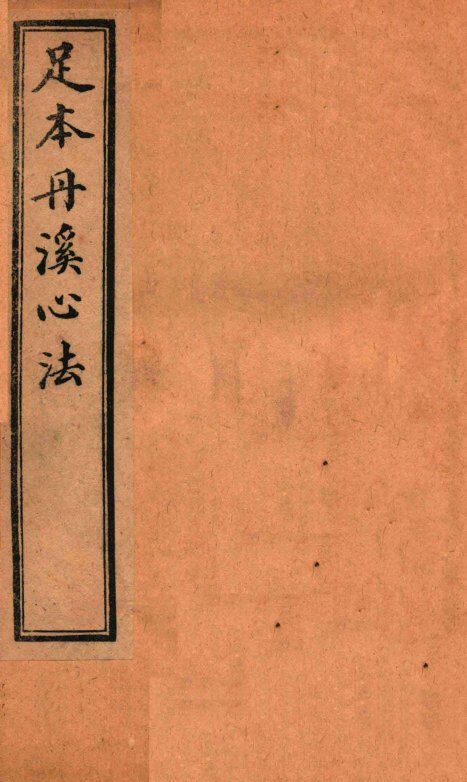 足本丹溪心法